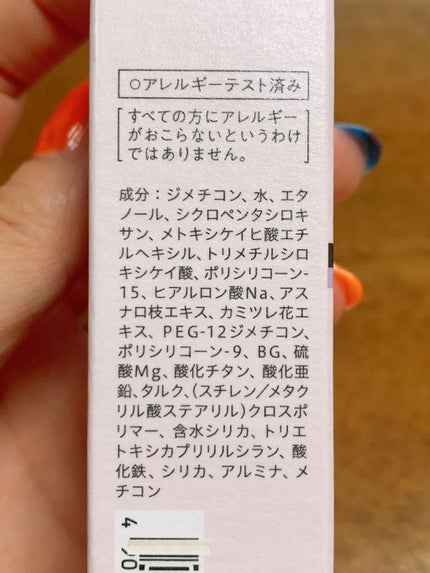 ○アレルギーテスト済み
すべての方にアレルギー
がおこらないというわけ
ではありません。
成分：ジメチコン、水、エタ
ノール、シクロペンタシロキ
サン、メトキシケイヒ酸エチ
ルヘキシル、トリメチルシロ
キシケイ酸、ポリシリコーン-
15、ヒアルロン酸Na、アス
ナロ枝エキス、カミツレ花エ
キス、PEG-12ジメチコン、
ポリシリコーン-9、BG、硫
酸Mg、酸化チタン、酸化亜
鉛、タルク、(スチレン／メタク
リル酸ステアリル)クロスポ
リマー、含水シリカ、トリエ
トキシカプリリルシラン、酸
化鉄、シリカ、アルミナ、メ
チコン